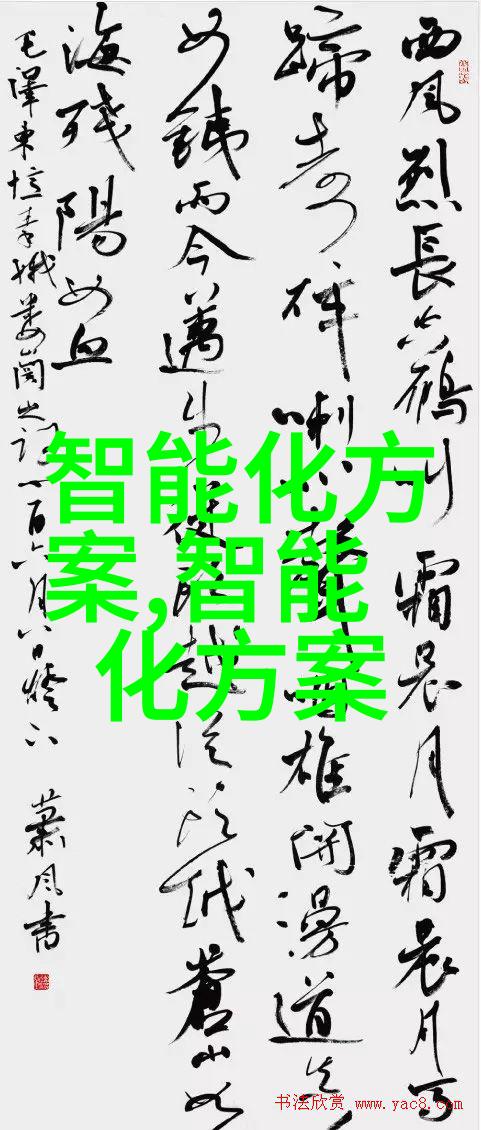 西風烈長空雁叫霜晨月霜晨月馬
蹄声碎喇叭聲咽雄関漫道真
如鐵而今邁步從頭越從頭越蒼山如
海残陽如血
毛澤東憶秦娥婁山関之詞 六月八日燈下 蕭風書
智能化方
案,智能
化方案
书法欣赏 www.yac8.com